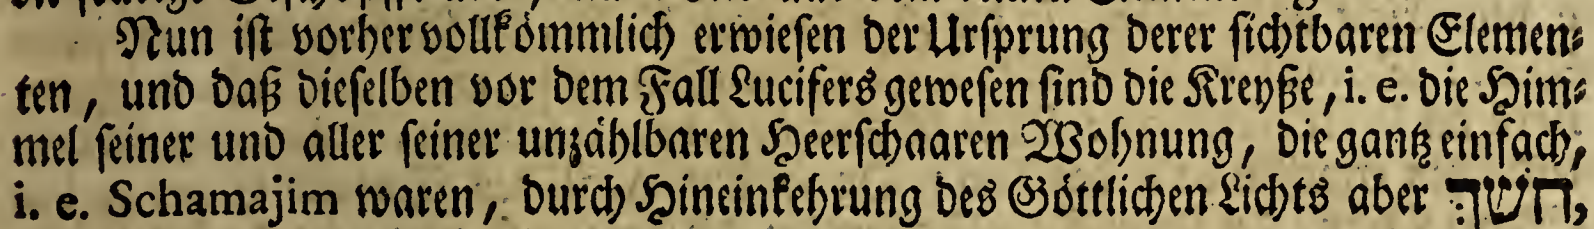 Nun ist vorher vollkömmlich erwiesen der Ursprung derer sichtbaren Elemen⸗
ten, und daß dieselben vor dem Fall Lucifers gewesen sind die Kreyße, i. e. die Him⸗
mel seiner und aller seiner unzählbaren Heerschaaren Wohnung, die gantz einfach,
i. e. Schamajim waren, durch Hineinkehrung des Göttlichen Lichts aber חשך,